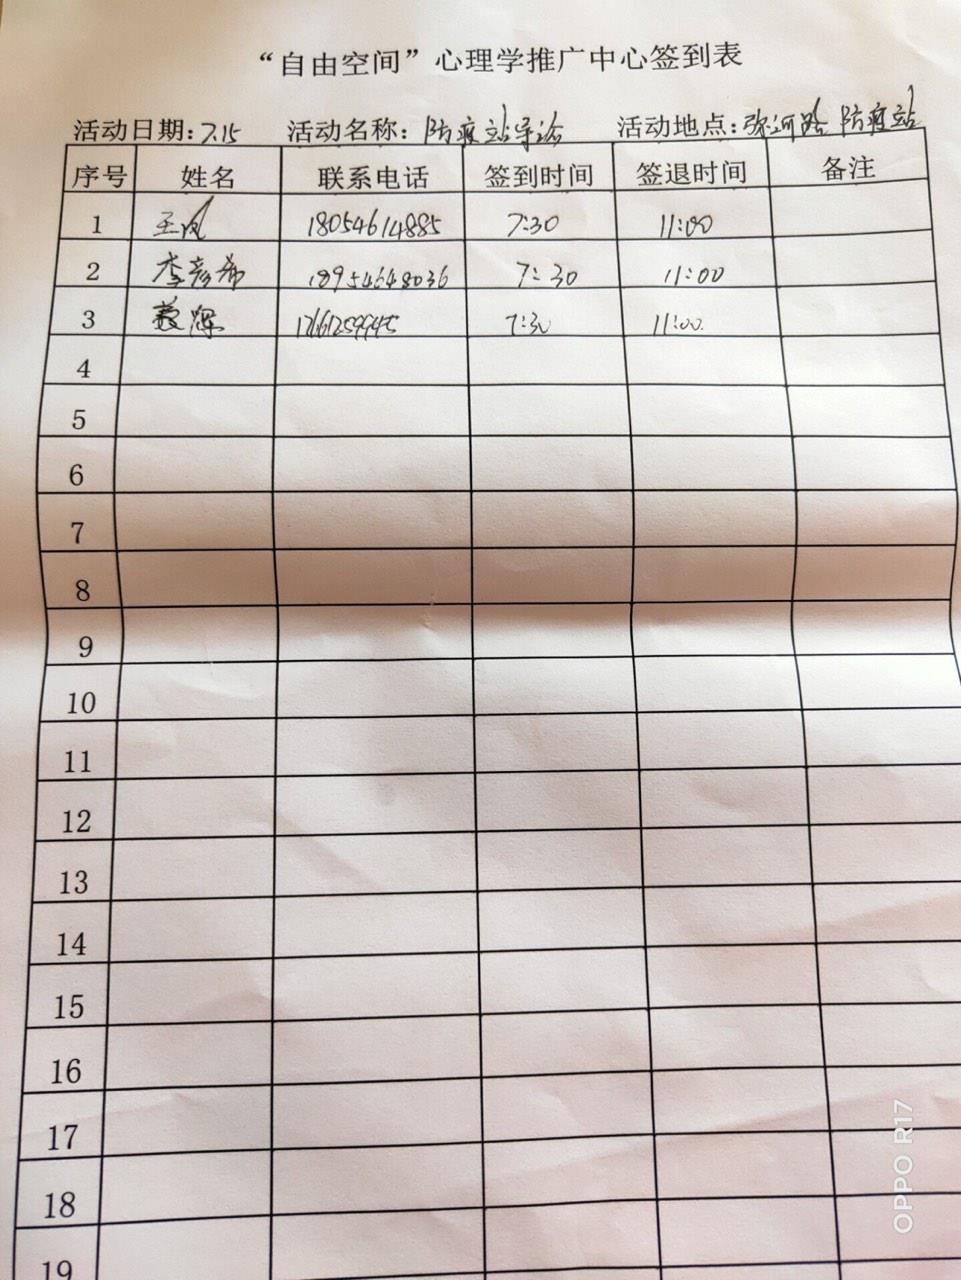 “自由空间”心理学推广中心签到表
活动日期:7.15 活动名称:防疫站导诊 活动地点:弥河路 防疫站
序号 姓名 联系电话 签到时间 签退时间 备注
1 王凤 18054614885 7:30 11:00
2 李彦希 18954648036 7:30 11:00
3 7:30 11:00.
4
5
6
7
8
9
10
11
12
13
14
15
16
17
18
19
OPPO R17